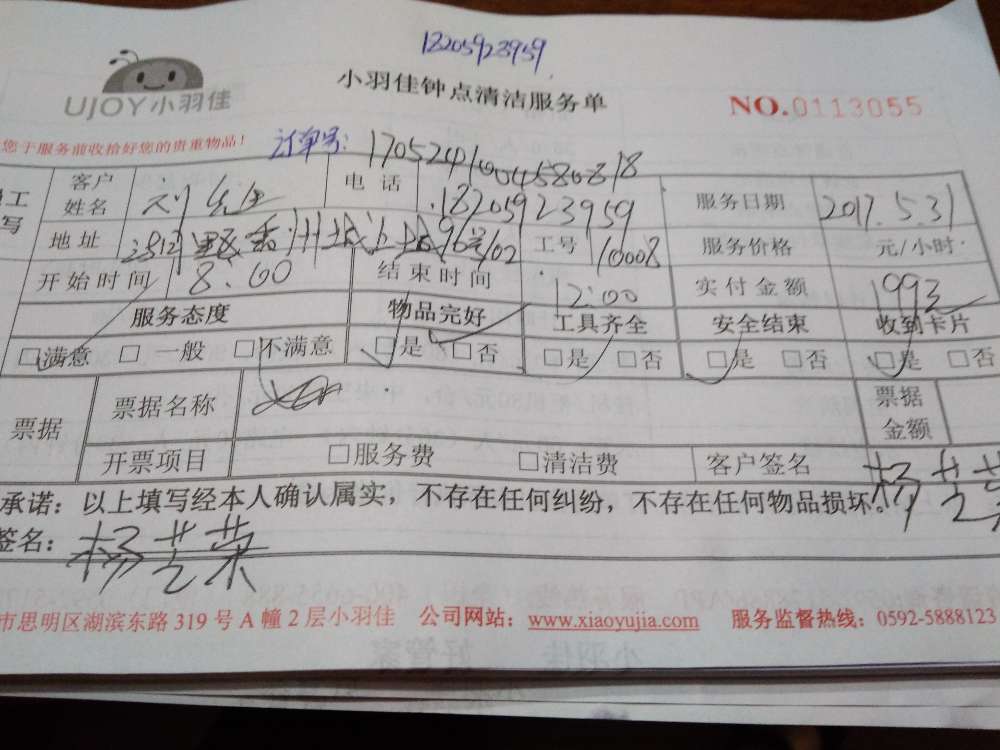 18205923959
UJOY小羽佳
小羽佳钟点清洁服务单
NO.0113055
您于服务前收拾好您的贵重物品!
订单号: 17052410045808818
工 客户姓名 刘先生 电话 18205923959 服务日期 2017.5.31
写 地址 工号 10008 服务价格 元/小时
开始时间 8.00 结束时间 12:00 实付金额 1993
服务态度 物品完好 工具齐全 安全结束 收到卡片
□满意 □一般 □不满意 □是 □否 □是 □否 □是 □否 □是 □否
票据 票据名称 票据金额
开票项目 □服务费 □清洁费 客户签名 杨芝荣
承诺: 以上填写经本人确认属实,不存在任何纠纷,不存在任何物品损坏。
签名: 杨芝荣
市思明区湖滨东路 319 号 A 幢 2 层小羽佳 公司网站: www.xiaoyujia.com 服务监督热线: 0592-5888123